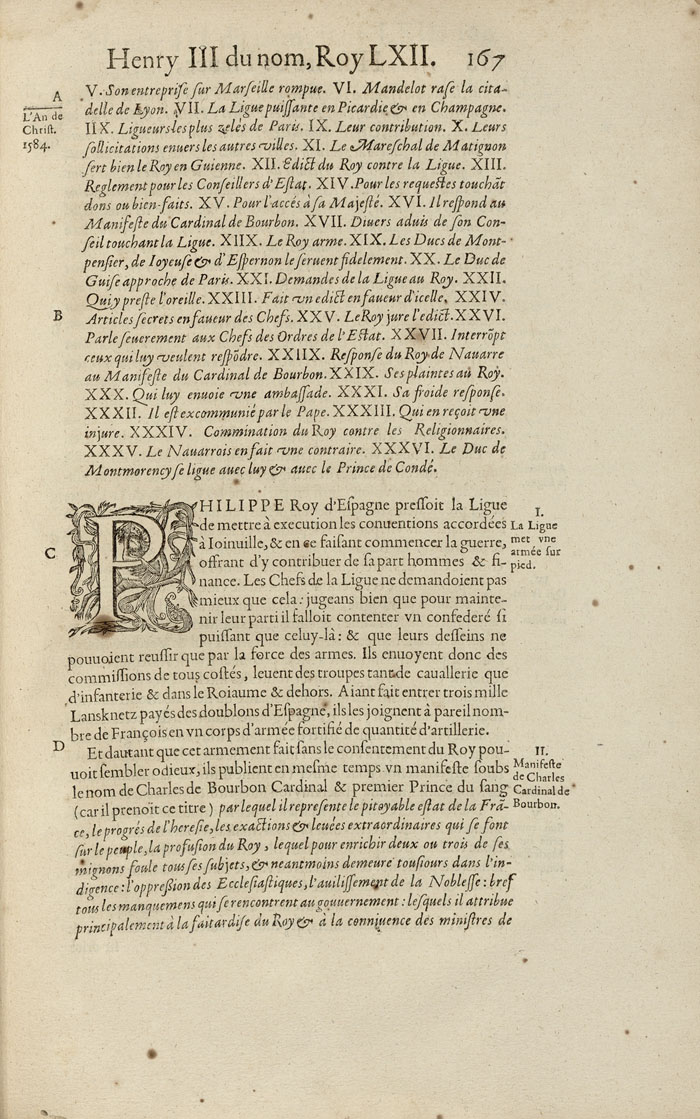 Henry III du nom, Roy LXII. 167
A
L'An de
Christ.
1584.
V. Son entreprise sur Marseille rompue. VI. Mandelot rase la cita-
delle de Lyon. VII. La Ligue puissante en Picardie & en Champagne.
IIX. Ligueurs les plus zelés de Paris. IX. Leur contribution. X. Leurs
sollicitations enuers les autres villes. XI. Le Mareschal de Matignon
sert bien le Roy en Guienne. XII. Edict du Roy contre la Ligue. XIII.
Reglement pour les Conseillers d'Estat. XIV. Pour les requestes touchãt
dons ou bien-faits. XV. Pour l'accés à sa Majesté. XVI. Il respond au
Manifeste du Cardinal de Bourbon. XVII. Diuers aduis de son Con-
seil touchant la Ligue. XIIX. Le Roy arme. XIX. Les Ducs de Mont-
pensier, de Ioyeuse & d'Espernon le seruent fidelement. XX. Le Duc de
Guise approche de Paris. XXI. Demandes de la Ligue au Roy. XXII.
Qui y preste l'oreille. XXIII. Fait vn edict en faueur d'icelle. XXIV.
B
Articles secrets en faueur des Chefs. XXV. Le Roy jure l'edict. XXVI.
Parle seuerement aux Chefs des Ordres de l'Estat. XXVII. Interrõpt
ceux qui luy veulent respõdre. XXIIX. Response du Roy de Nauarre
au Manifeste du Cardinal de Bourbon. XXIX. Ses plaintes au Roy.
XXX. Qui luy enuoie vne ambassade. XXXI. Sa froide response.
XXXII. Il est excommunié par le Pape. XXXIII. Qui en reçoit vne
injure. XXXIV. Commination du Roy contre les Religionnaires.
XXXV. Le Nauarrois en fait vne contraire. XXXVI. Le Duc de
Montmorency se ligue auec luy & auec le Prince de Condé.
PHILIPPE Roy d'Espagne pressoit la Ligue
de mettre à execution les conuentions accordées
à Ioinuille, & en ce faisant commencer la guerre,
offrant d'y contribuer de sa part hommes & fi-
nance. Les Chefs de la Ligue ne demandoient pas
mieux que cela: jugeans bien que pour mainte-
nir leur parti il falloit contenter vn confederé si
puissant que celuy-là: & que leurs desseins ne
pouuoient reussir que par la force des armes. Ils enuoyent donc des
commissions de tous costés, leuent des troupes tant de cauallerie que
d'infanterie & dans le Roiaume & dehors. Aiant fait entrer trois mille
Lansknetz payés des doublons d'Espagne, ils les joignent à pareil nom-
bre de François en vn corps d'armée fortifié de quantité d'artillerie.
I.
La Ligue
met vne
armée sur
pied.
C
D
Et dautant que cet armement fait sans le consentement du Roy pou-
uoit sembler odieux, ils publient en mesme temps vn manifeste soubs
le nom de Charles de Bourbon Cardinal & premier Prince du sang
(car il prenoit ce titre) par lequel il represente le pitoyable estat de la Frã-
ce, le progrés de l'heresie, les exactions & leuées extraordinaires qui se font
sur le peuple, la profusion du Roy, lequel pour enrichir deux ou trois de ses
mignons foule tous ses subjets, & neantmoins demeure tousiours dans l'in-
digence: l'oppression des Ecclesiastiques, l'auilissement de la Noblesse: bref
tous les manquemens qui se rencontrent au gouuernement: lesquels il attribue
principalement à la faitardise du Roy & à la conniuence des ministres de
II.
Manifeste
de Charles
Cardinal de
Bourbon.